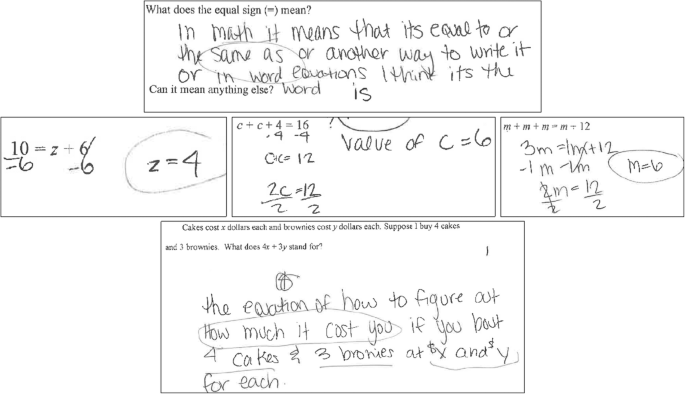 What does the equal sign (=) mean?
In math it means that its equal to or
the same as or another way to write it
or in word equations I think its the
Can it mean anything else? word is
10 = z + 6
-6 -6
z=4
c + c + 4 = 16
-4 -4
c+c= 12
2c =12
2 2
?
value of c=6
m + m + m = m + 12
3m =1m+12
-1m -1m
2m = 12
2 2
m=6
Cakes cost x dollars each and brownies cost y dollars each. Suppose I buy 4 cakes
and 3 brownies. What does 4x + 3y stand for?
1
the equation of how to figure out
How much it cost you if you bout
4 cakes & 3 bronies at $x and $y
for each.